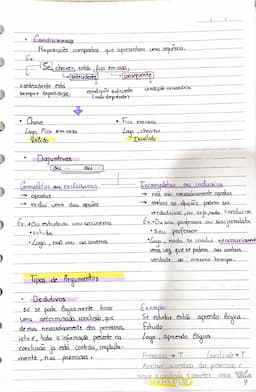 • Condicionais
Proposições compostas que apresentam uma sequência.
Ex:
Se chover, então fico em casa,
antecedente
consequente
antecedente não
sempre expressa se.
condição suficiente
(não depende)
condição necessária
• Chove
Logo, Fico em casa
Válido
• Fico em casa
Logo, choveu
Inválido
• Disjuntivas
(Ou ... ou ...)
Completas ou exclusivas
→ opostas
→ exclui uma das opções
Ex: • Ou estudo ou vou ao cinema
• estudo
• Logo, não vou ao cinema
Incompletas ou inclusivas
→ não são necessariamente opostas
→ ambas as opções podem ser
verdadeiras, ou seja, nada conclui-se
Ex: • Ou sou professora ou sou jornalista
• Sou professor
• Logo, nada se conclui necessariamente
uma vez que se podem ser ambas
verdade ao mesmo tempo.
Tipos de Argumentos
• Dedutivos
só se pode logicamente tirar
uma determinada conclusão, que
deriva necessariamente das premissas,
isto é, toda a informação presente na
conclusão já está contida, implicita-
mente, nas premissas.
Exemplo:
Se estudas então aprendo lógica.
Estudo
Logo, aprendo lógica
Premissas → T
Conclusão → T